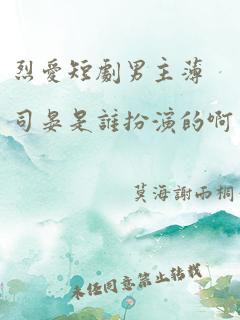 烈愛短劇男主薄
司晏是誰扮演的啊
莫海謝雨桐
未经同意禁止转载